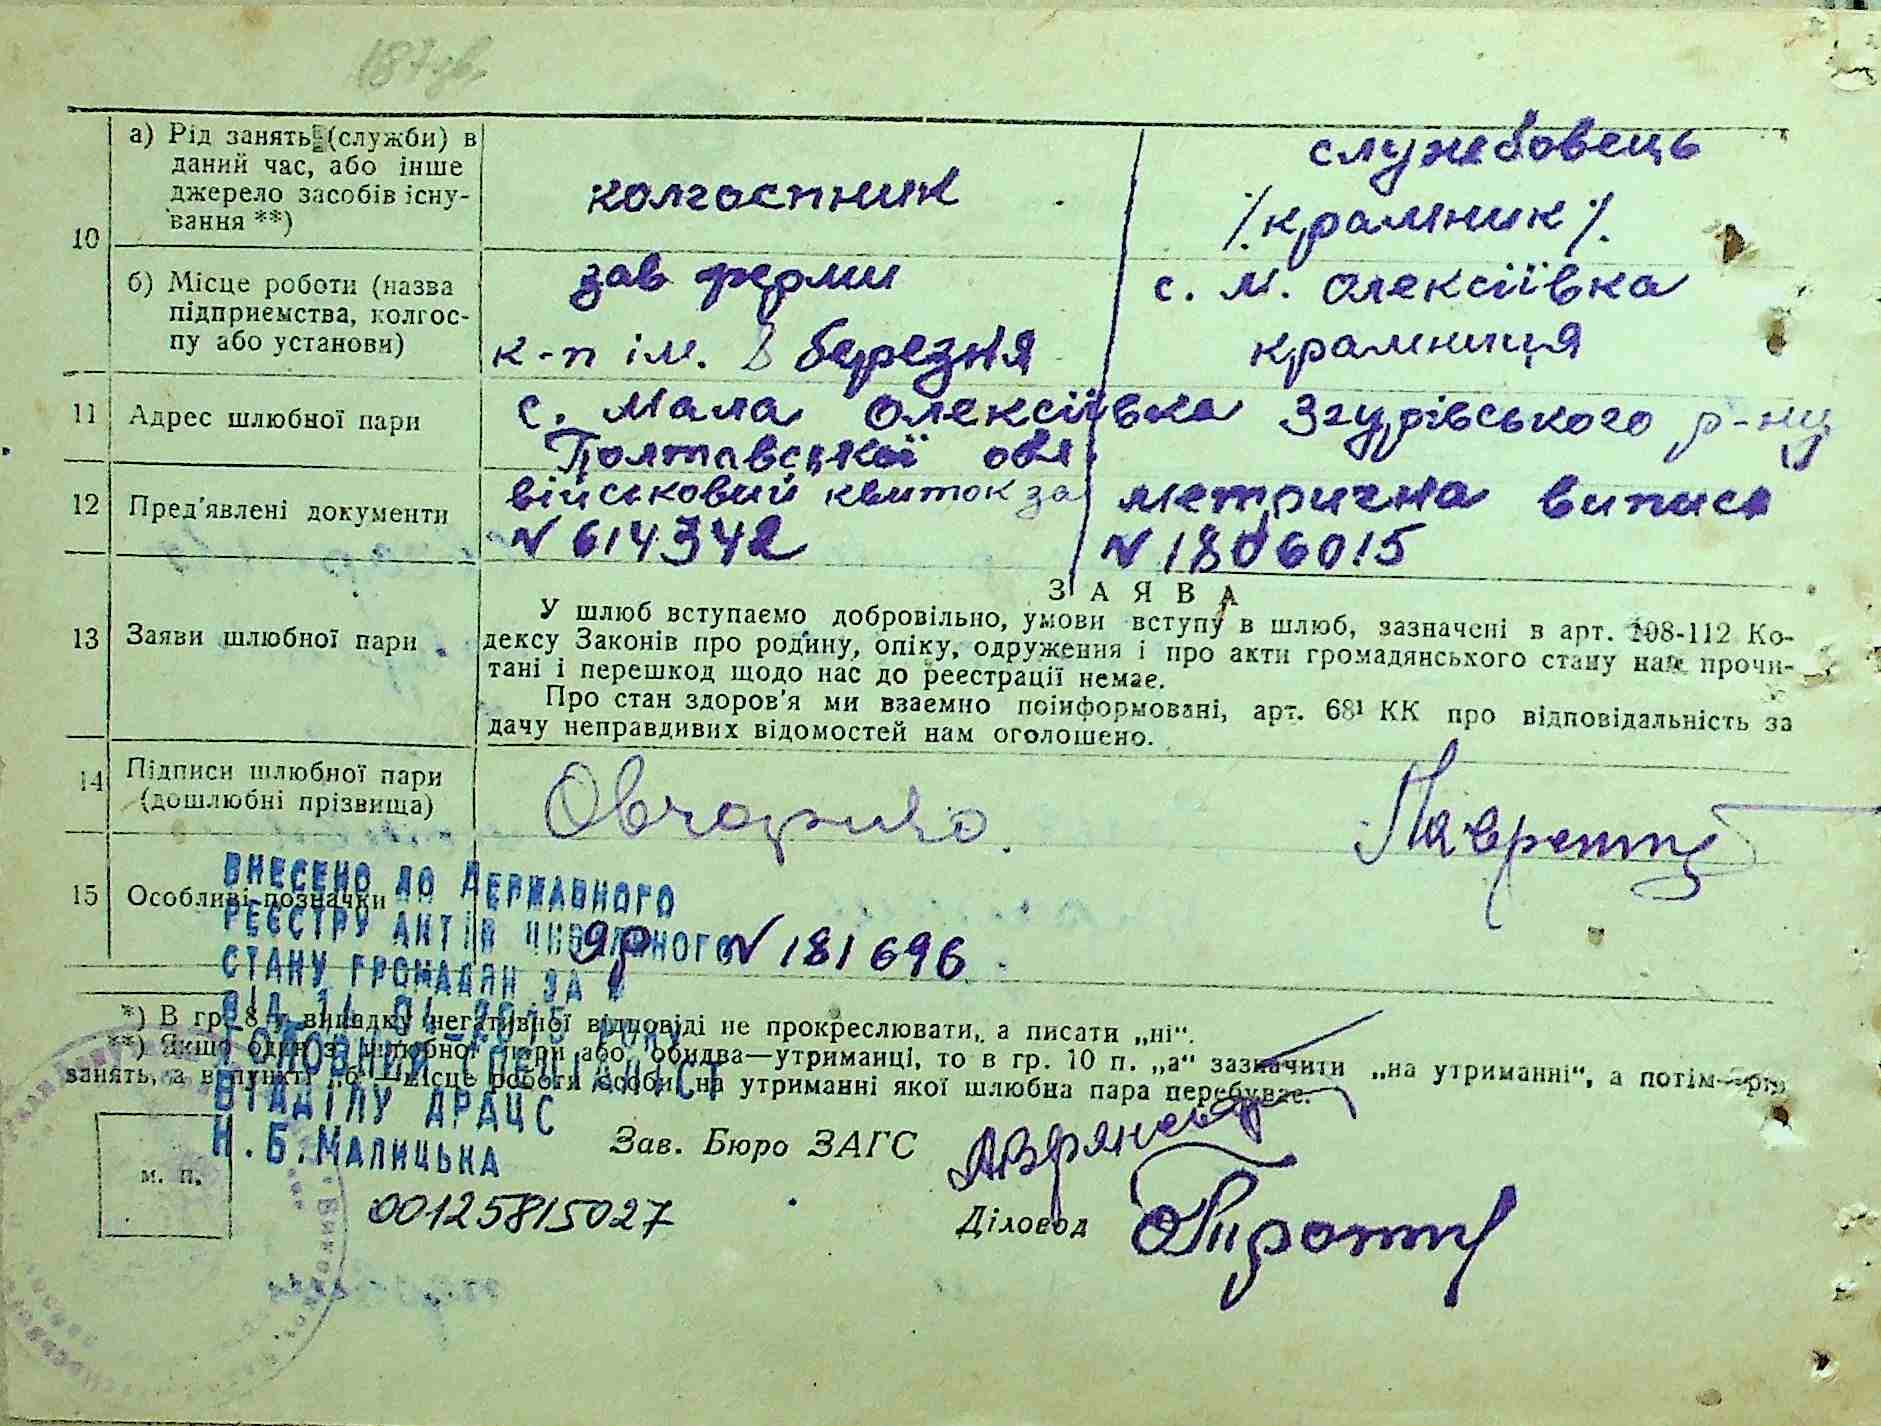 187 зв.
10
а) Рід занять (служби) в
даний час, або інше
джерело засобів існу-
вання **)
колгоспник
службовець
/крамник/.
б) Місце роботи (назва
підприємства, колгос-
пу або установи)
зав ферми
к-п ім. 8 березня
с. М. Олексіївка
крамниця
11
Адрес шлюбної пари
с. Мала Олексіївка Згурівського р-ну
Полтавської обл.
12
Пред'явлені документи
військовий квиток за
№ 614342
метрична випись
№ 1806015
13
Заяви шлюбної пари
ЗАЯВА
У шлюб вступаємо добровільно, умови вступу в шлюб, зазначені в арт. 108-112 Ко-
дексу Законів про родину, опіку, одруження і про акти громадянського стану нам прочи-
тані і перешкод щодо нас до реєстрації немає.
Про стан здоров'я ми взаємно поінформовані, арт. 68¹ КК про відповідальність за
дачу неправдивих відомостей нам оголошено.
14
Підписи шлюбної пари
(дошлюбні прізвища)
15
Особливі позначки
№ 181696.
ВНЕСЕНО ДО ДЕРЖАВНОГО
РЕЄСТРУ АКТІВ ЦИВІЛЬНОГО
СТАНУ ГРОМАДЯН ЗА №
ВІД 2015 РОКУ
ГОЛОВНИЙ СПЕЦІАЛІСТ
ВІДДІЛУ ДРАЦС
Н.Б.МАЛИЦЬКА
00125815027
*) В гр. 8 у випадку негативної відповіді не прокреслювати, а писати „ні".
**) Якщо один з шлюбної пари або обидва—утриманці, то в гр. 10 п. „а" зазначити „на утриманні", а потім—рід
занять, а в пункті „б"—місце роботи особи, на утриманні якої шлюбна пара перебуває.
м. п.
Зав. Бюро ЗАГС
Діловод